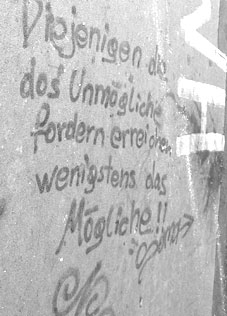 Diejenigen die
das Unmögliche
fordern erreichen
wenigstens das
Mögliche!!